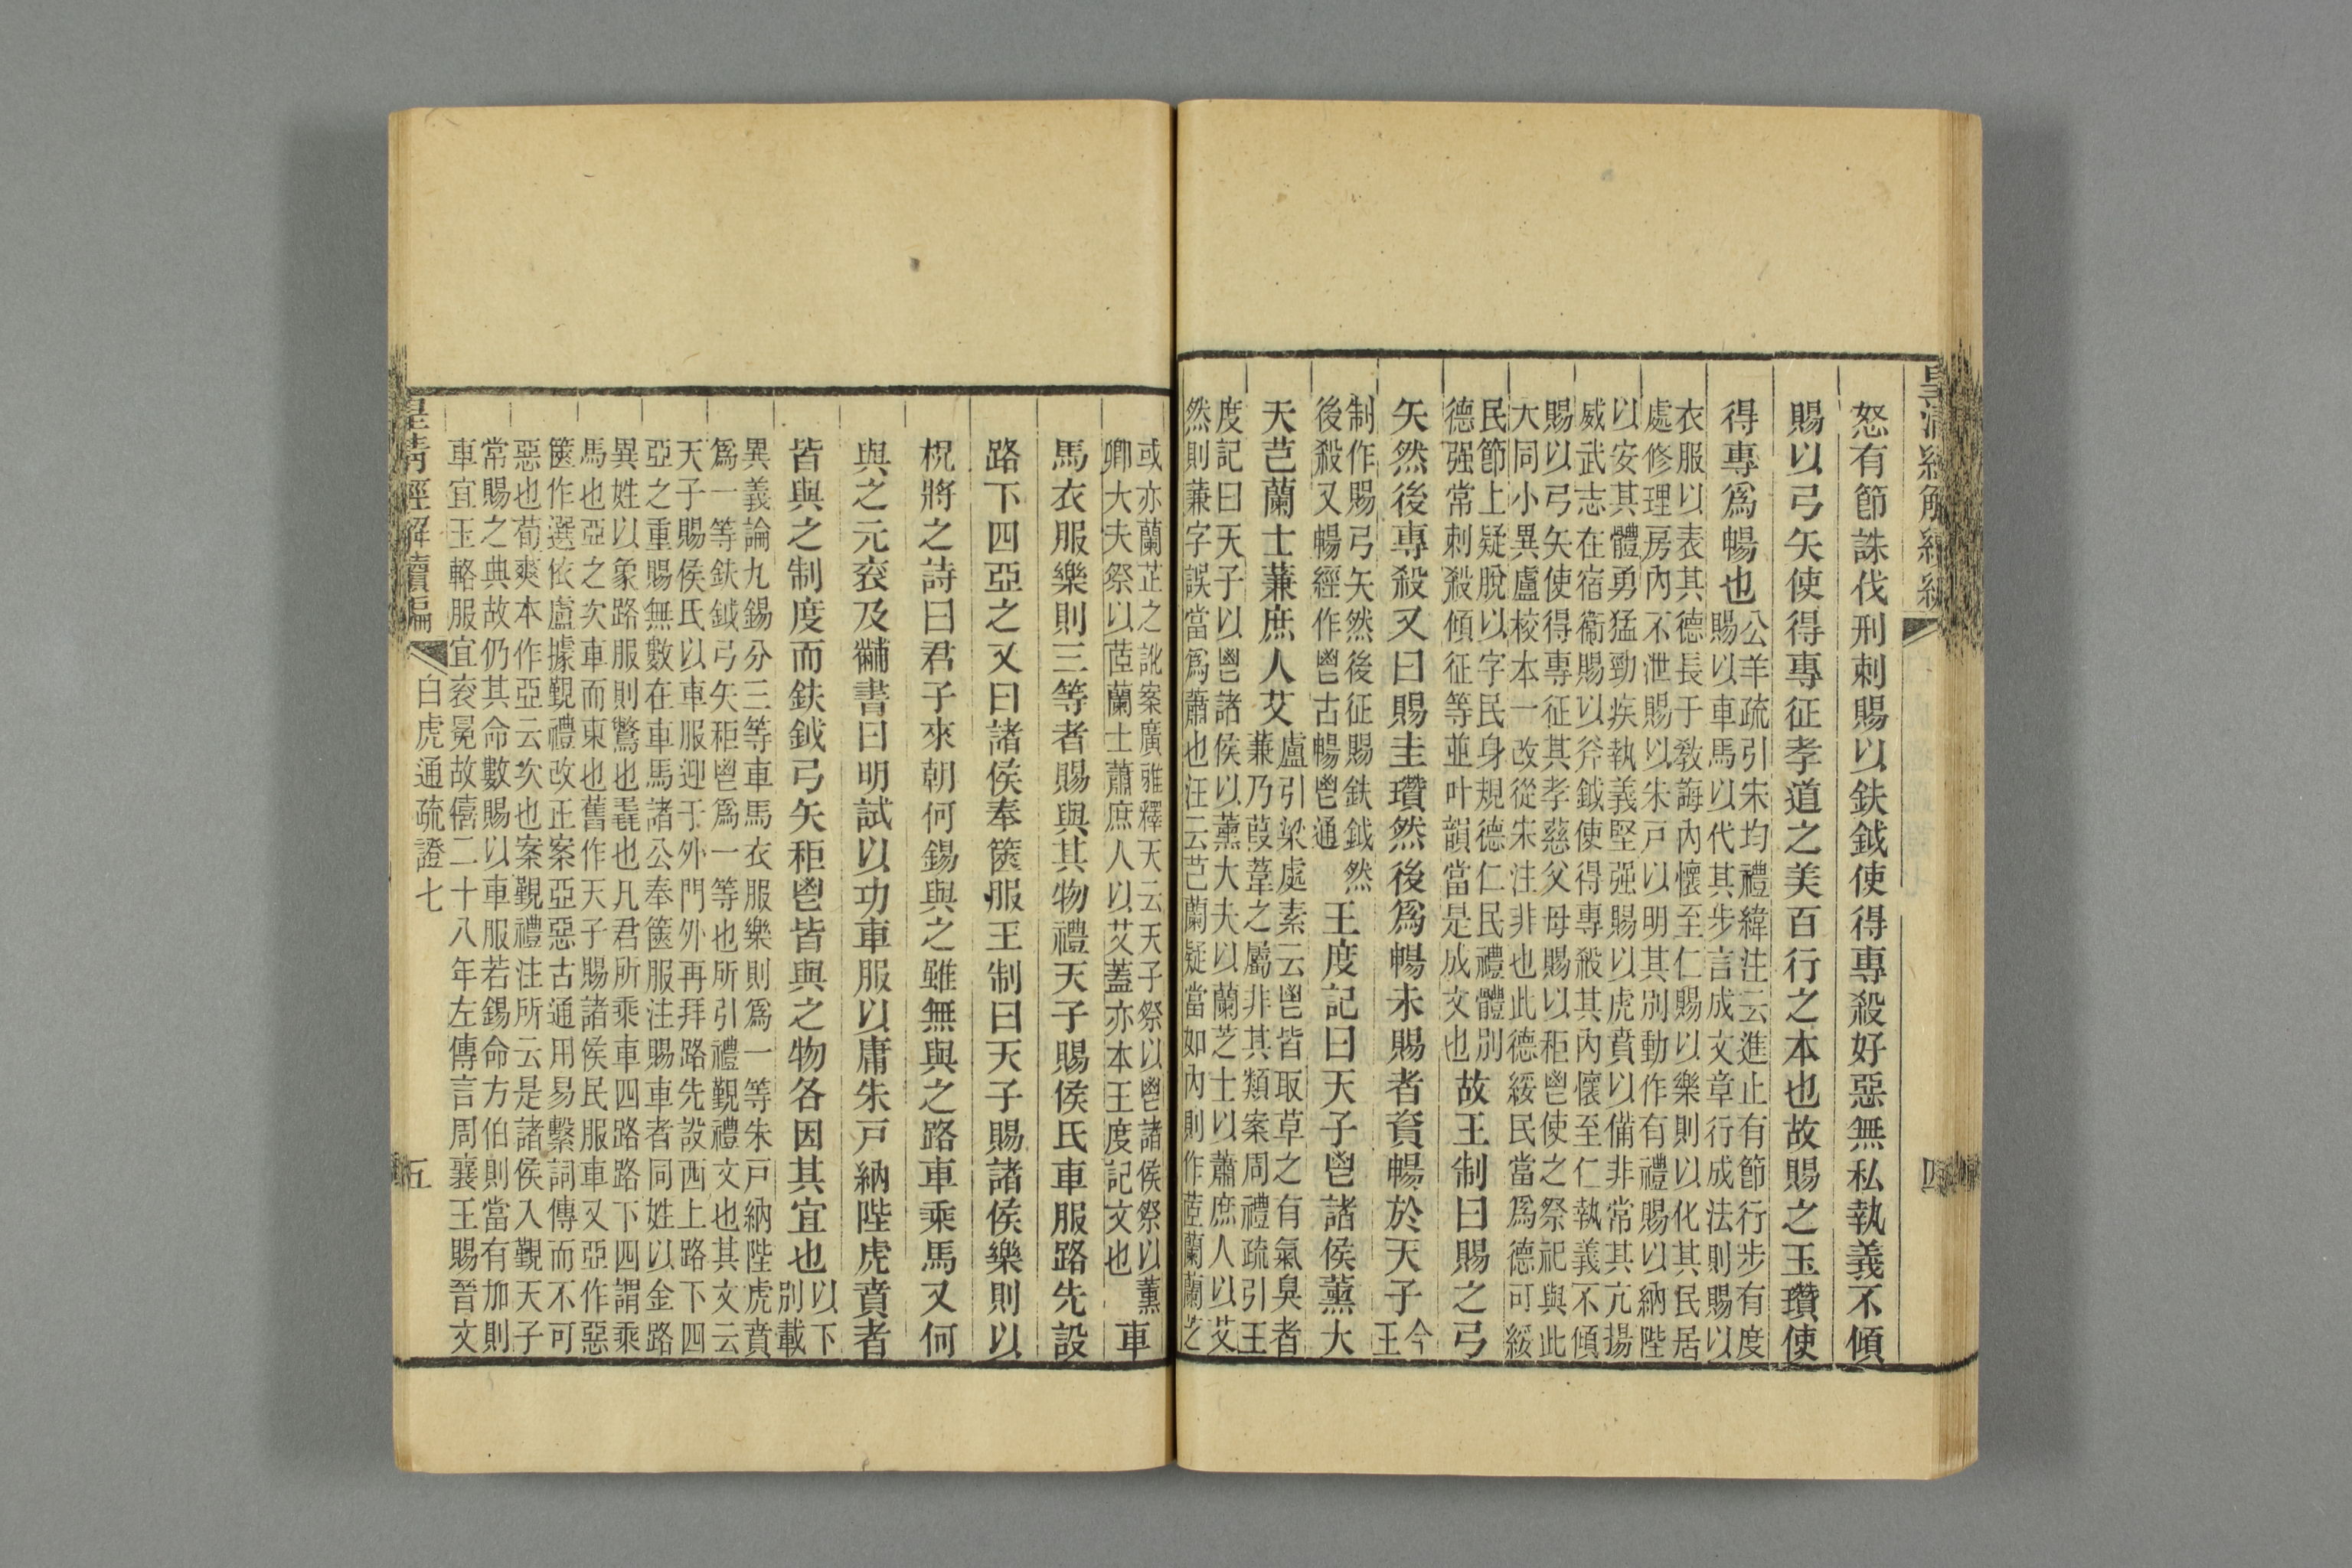 皇清經解續編 四
怒有節誅伐刑刺賜以鈇鉞使得專殺好惡無私執義不傾
賜以弓矢使得專征孝道之美百行之本也故賜之玉瓚使
得專爲暢也
公羊疏引宋均禮緯注云進止有節行步有度
賜以車馬以代其步言成文章行成法則賜以
衣服以表其德長于教誨內懷至仁賜以樂則以化其民居
處修理房內不泄賜以朱戸以明其別動作有禮賜以納陛
以安其體勇猛勁疾執義堅强賜以虎賁以備非常其亢揚
威武志在宿衞賜以斧鉞使得專殺其內懷至仁執義不傾
賜以弓矢使得專征其孝慈父母賜以秬鬯使之祭祀與此
大同小異盧校本一改從宋注非也此德綏民當爲德可綏
民節上疑脫以字民身規德仁民禮體別
德强常刺殺傾征等並叶韻當是成文也
故王制曰賜之弓
矢然後專殺又曰賜圭瓚然後爲暢未賜者資暢於天子
今
王
制作賜弓矢然後征賜鈇鉞然
後殺又暢經作鬯古暢鬯通
王度記曰天子鬯諸侯薰大
天芑蘭士蒹庶人艾
盧引梁處素云鬯皆取草之有氣臭者
蒹乃葭葦之屬非其類案周禮疏引王
度記曰天子以鬯諸侯以薰大夫以蘭芝士以蕭庶人以艾
然則蒹字誤當爲蕭也汪云芑蘭疑當如內則作茝蘭蘭芝
或亦蘭芷之訛案廣雅釋天云天子祭以鬯諸侯祭以薰
卿大夫祭以茝蘭士蕭庶人以艾蓋亦本王度記文也
車
馬衣服樂則三等者賜與其物禮天子賜侯氏車服路先設
路下四亞之又曰諸侯奉篋服王制曰天子賜諸侯樂則以
柷將之詩曰君子來朝何錫與之雖無與之路車乘馬又何
與之元衮及黼書曰明試以功車服以庸朱戸納陛虎賁者
皆與之制度而鈇鉞弓矢秬鬯皆與之物各因其宜也
以下
別載
異義論九錫分三等車馬衣服樂則爲一等朱戸納陛虎賁
爲一等鈇鉞弓矢秬鬯爲一等也所引禮覲禮文也其文云
天子賜侯氏以車服迎于外門外再拜路先設西上路下四
亞之重賜無數在車馬諸公奉篋服注賜車者同姓以金路
異姓以象路服則驚也毳也凡君所乘車四路路下四謂乘
馬也亞之次車而東也舊作天子賜諸侯民服車又亞作惡
篋作選依盧據覲禮改正案亞惡古通用易繫詞傳而不可
惡也荀爽本作亞云次也案覲禮注所云是諸侯入覲天子
常賜之典故仍其命數賜以車服若錫命方伯則當有加則
車宜玉輅服宜衮冕故僖二十八年左傳言周襄王賜晉文
皇清經解續編 白虎通疏證七 五